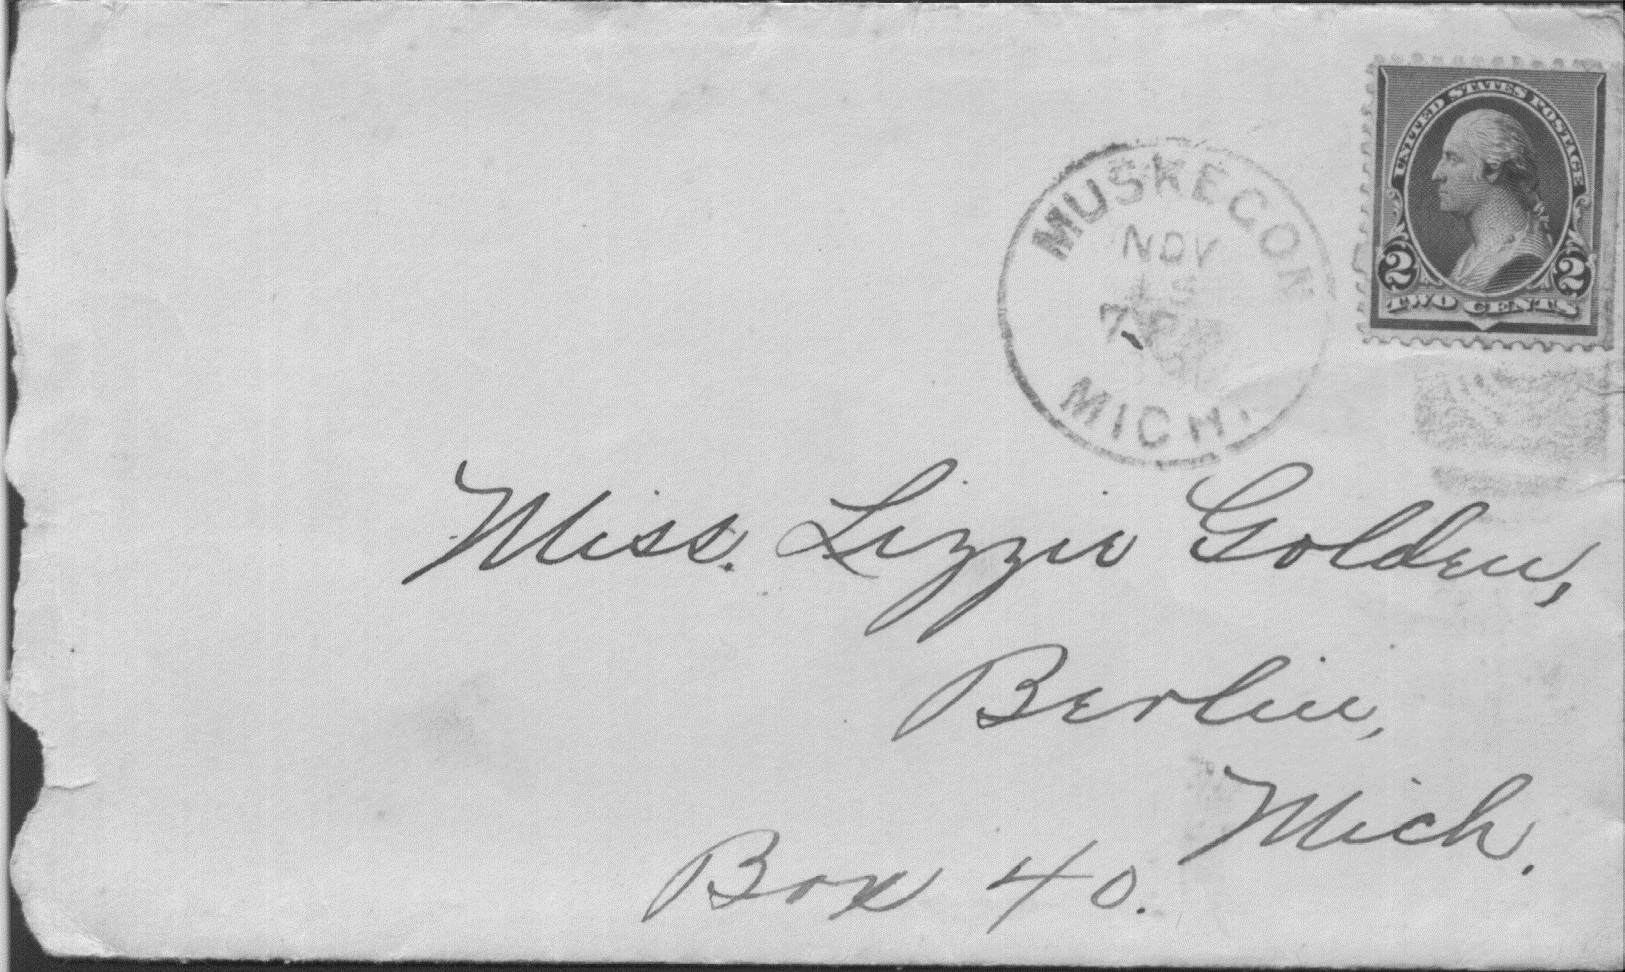 UNITED STATES POSTAGE
2 2
TWO CENTS
MUSKEGON
NOV
7 P
MICH.
Miss. Lizzie Golden,
Berlin,
Mich.
Box 40.